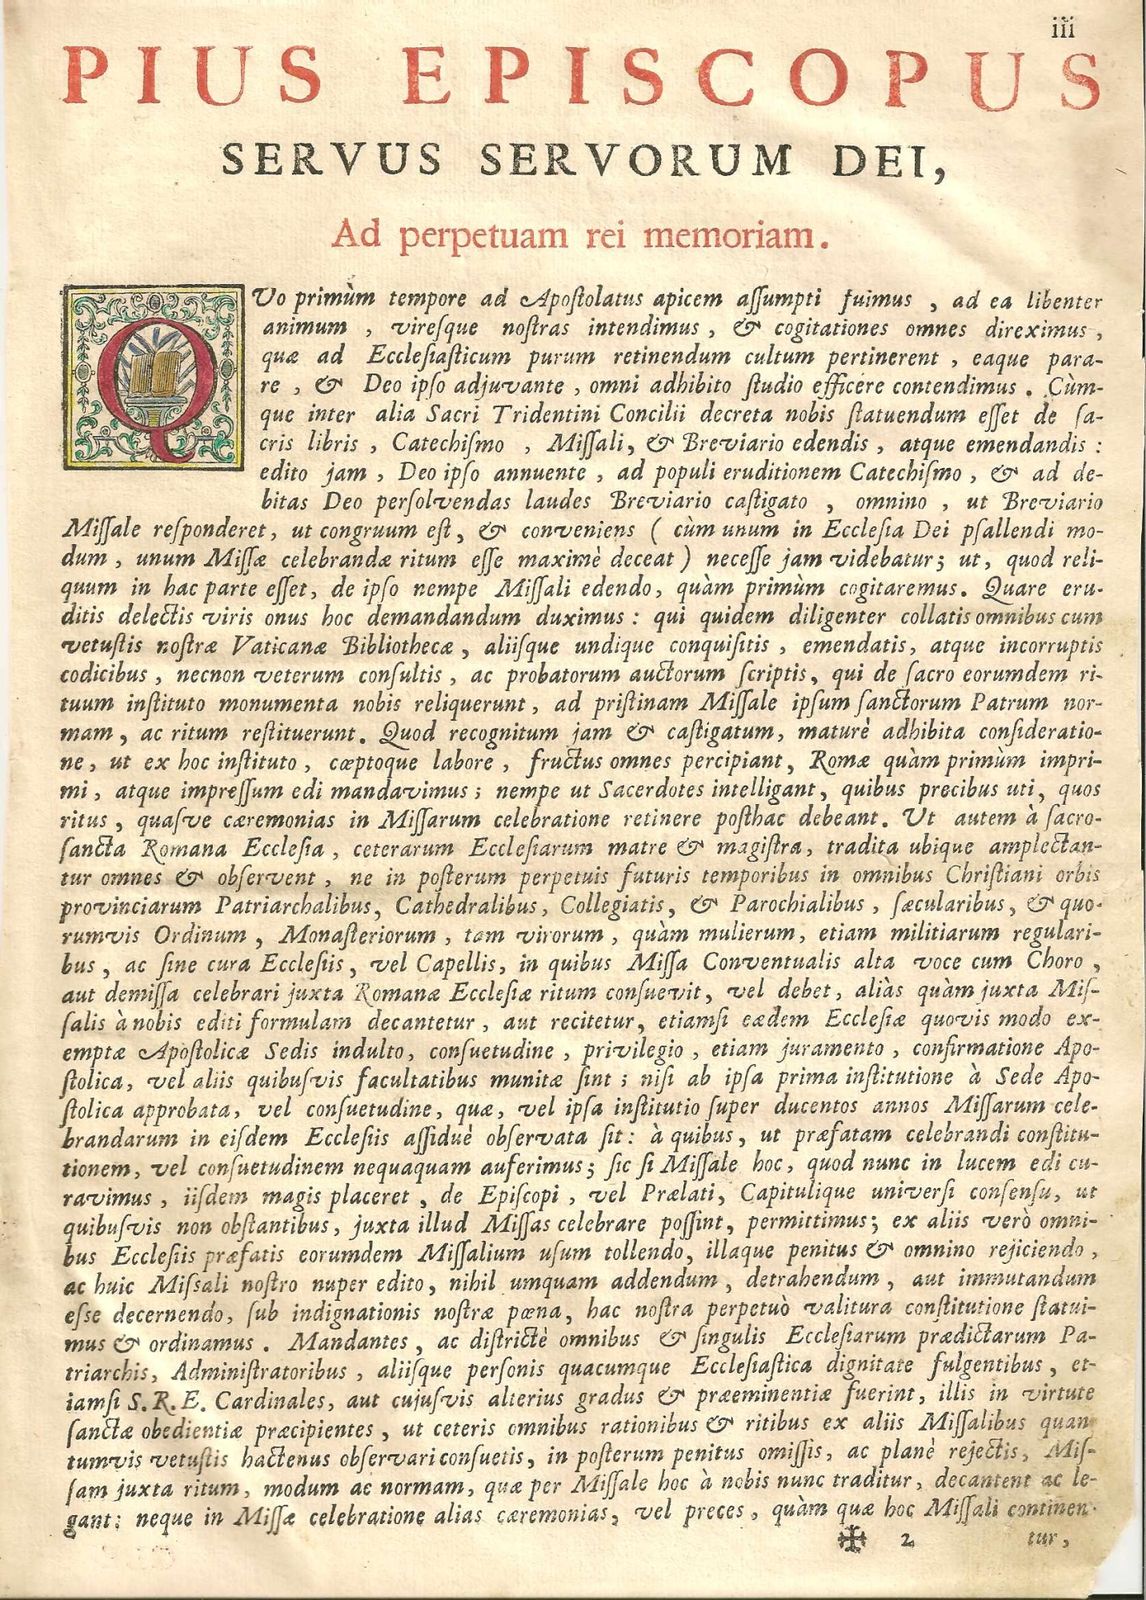 iii
PIUS EPISCOPUS
SERVUS SERVORUM DEI,
Ad perpetuam rei memoriam.
QUo primùm tempore ad Apoſtolatus apicem aſſumpti fuimus , ad ea libenter
animum , vireſque noſtras intendimus , & cogitationes omnes direximus ,
quæ ad Eccleſiaſticum purum retinendum cultum pertinerent , eaque para-
re , & Deo ipſo adjuvante , omni adhibito ſtudio efficere contendimus . Cùm-
que inter alia Sacri Tridentini Concilii decreta nobis ſtatuendum eſſet de ſa-
cris libris , Catechiſmo , Miſſali, & Breviario edendis , atque emendandis :
edito jam , Deo ipſo annuente , ad populi eruditionem Catechiſmo , & ad de-
bitas Deo perſolvendas laudes Breviario caſtigato , omnino , ut Breviario
Miſſale reſponderet, ut congruum eſt, & conveniens ( cùm unum in Eccleſia Dei pſallendi mo-
dum , unum Miſſæ celebrandæ ritum eſſe maximè deceat ) neceſſe jam videbatur; ut, quod reli-
quum in hac parte eſſet, de ipſo nempe Miſſali edendo, quàm primùm cogitaremus. Quare eru-
ditis delectis viris onus hoc demandandum duximus : qui quidem diligenter collatis omnibus cum
vetuſtis noſtræ Vaticanæ Bibliothecæ , aliiſque undique conquiſitis , emendatis, atque incorruptis
codicibus , necnon veterum conſultis , ac probatorum auctorum ſcriptis, qui de ſacro eorumdem ri-
tuum inſtituto monumenta nobis reliquerunt , ad priſtinam Miſſale ipſum ſanctorum Patrum nor-
mam , ac ritum reſtituerunt. Quod recognitum jam & caſtigatum, maturè adhibita conſideratio-
ne , ut ex hoc inſtituto , cæptoque labore , fructus omnes percipiant, Romæ quàm primùm impri-
mi , atque impreſſum edi mandavimus ; nempe ut Sacerdotes intelligant, quibus precibus uti, quos
ritus , quaſve cæremonias in Miſſarum celebratione retinere poſthac debeant. Ut autem à ſacro-
ſancta Romana Eccleſia , ceterarum Eccleſiarum matre & magiſtra, tradita ubique amplectan-
tur omnes & obſervent , ne in poſterum perpetuis futuris temporibus in omnibus Chriſtiani orbis
provinciarum Patriarchalibus, Cathedralibus, Collegiatis, & Parochialibus , ſæcularibus, & quo-
rumvis Ordinum , Monaſteriorum , tam virorum , quàm mulierum, etiam militiarum regulari-
bus , ac ſine cura Eccleſiis , vel Capellis, in quibus Miſſa Conventualis alta voce cum Choro ,
aut demiſſa celebrari juxta Romanæ Eccleſiæ ritum conſuevit, vel debet, aliàs quàm juxta Miſ-
ſalis à nobis editi formulam decantetur , aut recitetur, etiamſi eædem Eccleſiæ quovis modo ex-
emptæ Apoſtolicæ Sedis indulto, conſuetudine , privilegio , etiam juramento , confirmatione Apo-
ſtolica, vel aliis quibuſvis facultatibus munitæ ſint ; niſi ab ipſa prima inſtitutione à Sede Apo-
ſtolica approbata, vel conſuetudine, quæ, vel ipſa inſtitutio ſuper ducentos annos Miſſarum cele-
brandarum in eiſdem Eccleſiis aſſiduè obſervata ſit : à quibus, ut præfatam celebrandi conſtitu-
tionem, vel conſuetudinem nequaquam auferimus; ſic ſi Miſſale hoc, quod nunc in lucem edi cu-
ravimus , iiſdem magis placeret , de Epiſcopi , vel Prælati, Capitulique univerſi conſenſu, ut
quibuſvis non obſtantibus, juxta illud Miſſas celebrare poſſint, permittimus; ex aliis verò omni-
bus Eccleſiis præfatis eorumdem Miſſalium uſum tollendo, illaque penitus & omnino rejiciendo ,
ac huic Miſsali noſtro nuper edito , nihil umquam addendum , detrahendum , aut immutandum
eſse decernendo, ſub indignationis noſtræ pœna, hac noſtra perpetuò valitura conſtitutione ſtatui-
mus & ordinamus . Mandantes , ac diſtrictè omnibus & ſingulis Eccleſiarum prædictarum Pa-
triarchis, Adminiſtratoribus , aliiſque perſonis quacumque Eccleſiaſtica dignitate fulgentibus , et-
iamſi S. R. E. Cardinales, aut cujuſvis alterius gradus & præeminentiæ fuerint, illis in virtute
ſanctæ obedientiæ præcipientes , ut ceteris omnibus rationibus & ritibus ex aliis Miſſalibus quan
tumvis vetuſtis hactenus obſervari conſuetis, in poſterum penitus omiſſis, ac planè rejectis, Miſ-
ſam juxta ritum, modum ac normam, quæ per Miſſale hoc à nobis nunc traditur, decantent ac le-
gant; neque in Miſſæ celebratione alias cæremonias, vel preces , quàm quæ hoc Miſſali continen-
✠ 2 tur,